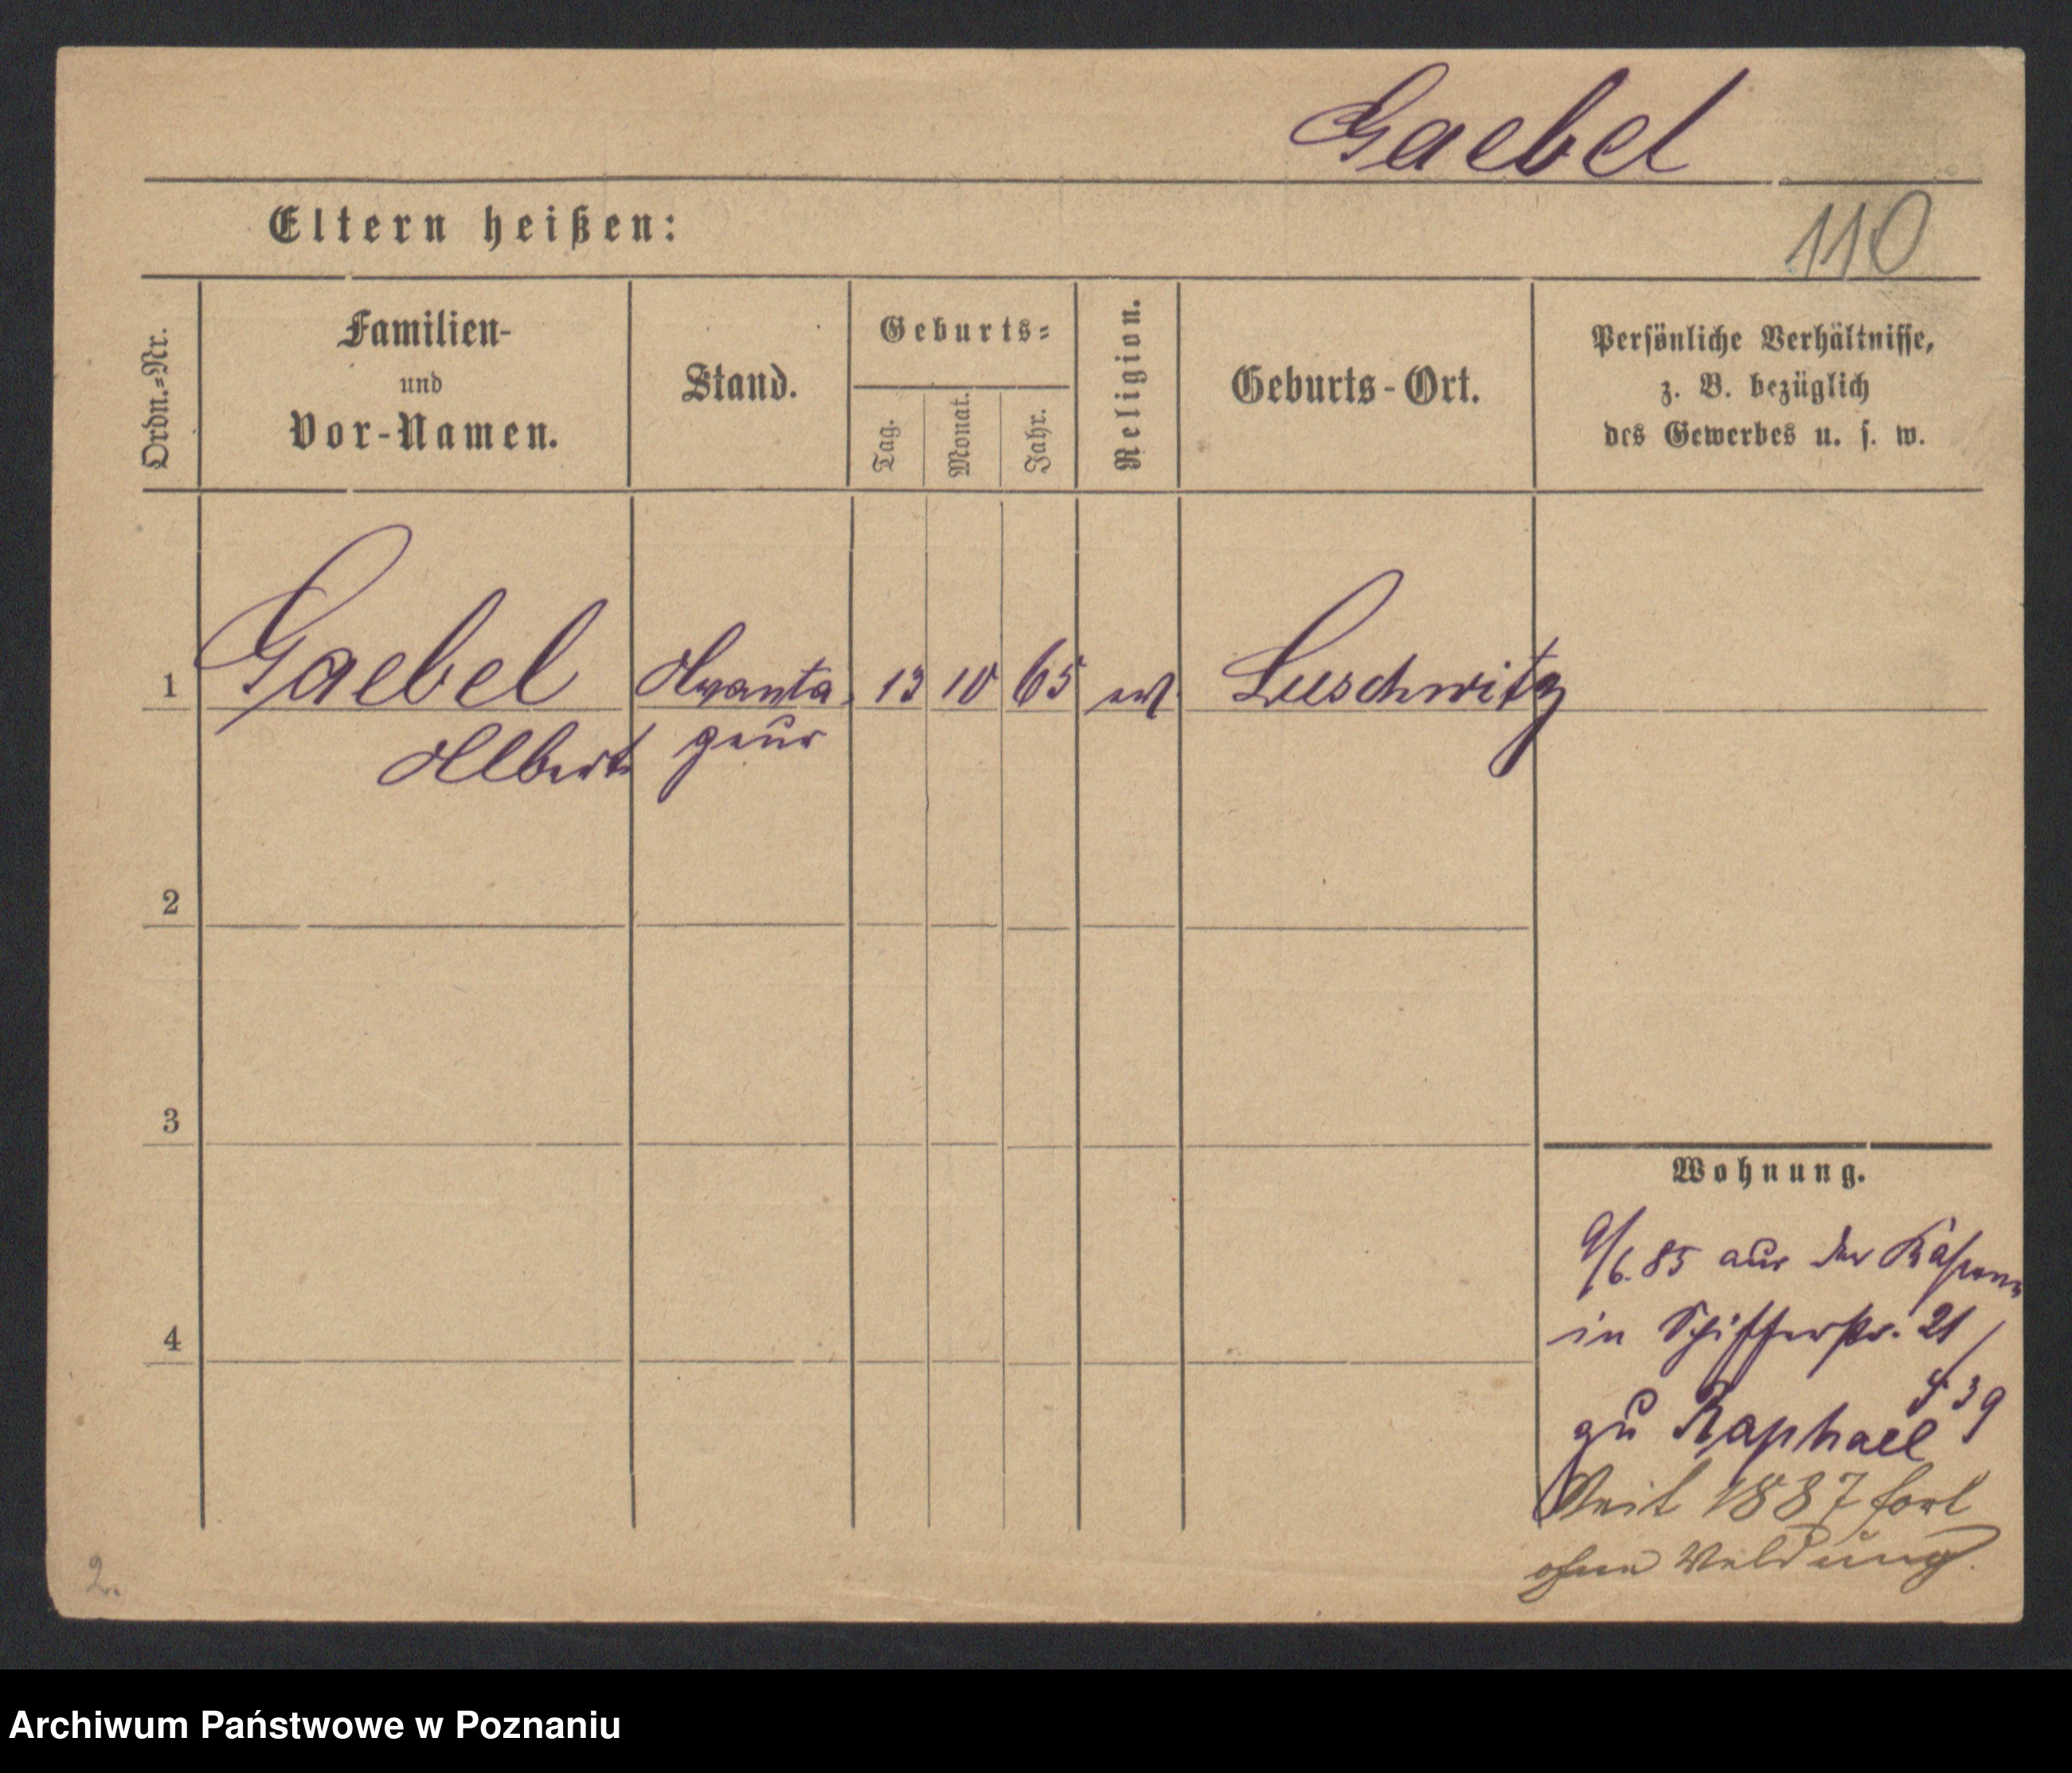 Gaebel
110
Eltern heißen:
Ordn.=Nr.
Familien-
und
Vor-Namen.
Stand.
Geburts=
Tag.
Monat.
Jahr.
Religion.
Geburts-Ort.
Persönliche Verhältnisse,
z. B. bezüglich
des Gewerbes u. s. w.
1
Gaebel
Albert
13
10
65
ev
Luschwitz
2
3
4
Wohnung.
9/6. 85 aus der
in Schifferstr. 21/
zu Raphael
Seit 1887 fort
ohne Meldung.
2.
Archiwum Państwowe w Poznaniu